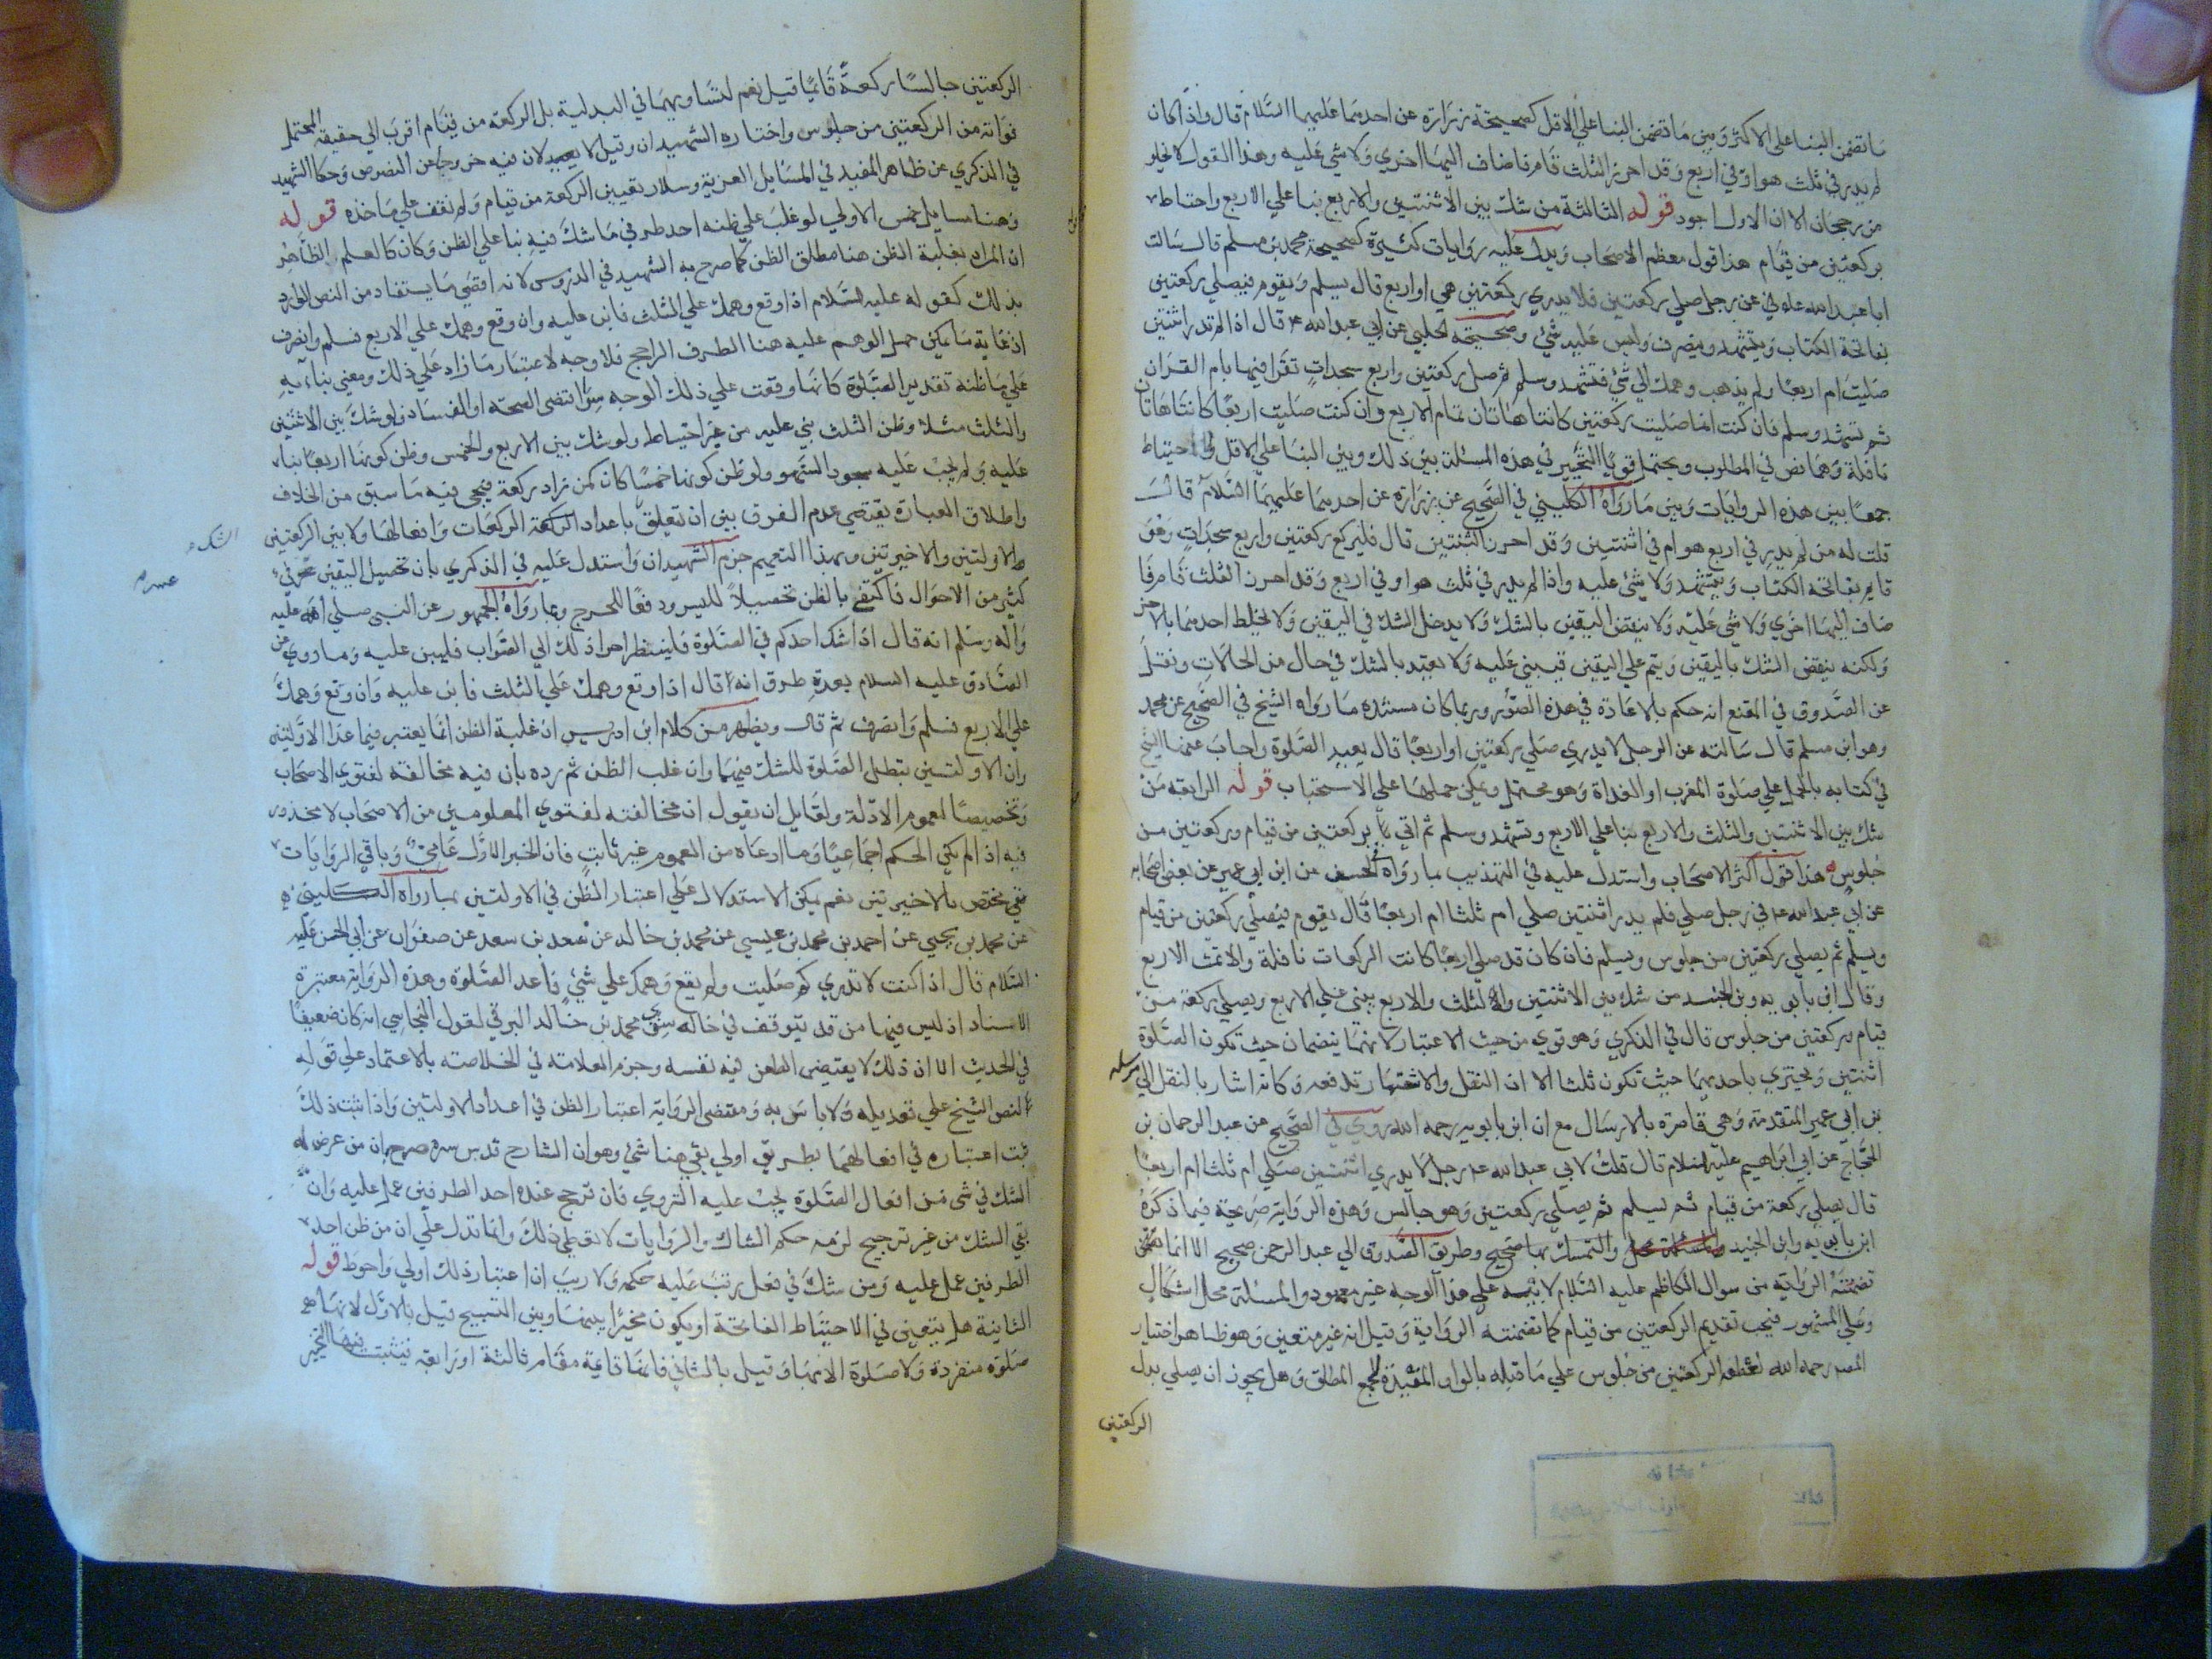 ما تضمن البناء على الاكثر وبين ما تضمن البناء على الاقل كصحيحة زرارة عن احدهما عليهما السلام قال واذا كان
لم يدر في ثلث هو او في اربع وقد احرز الثلث قام فاضاف اليها اخري ولا شي عليه وهذا القول لا يخلو
من رجحان الا ان الاول اجود قوله الثالثة من شك بين الاثنتين والاربع بنا علي الاربع واحتاط
بركعتين من قيام هذا قول معظم الاصحاب ويدل عليه روايات كثيرة كصحيحة محمد بن مسلم قال سالت
ابا عبد الله عن رجل صلي ركعتين فلا يدري ركعتين هي او اربع قال يسلم ويقوم فيصلي ركعتين
بفاتحة الكتاب ويتشهد وينصرف وليس عليه شئ وصحيحة الحلبي عن ابي عبد الله ع قال اذا لم تدر اثنتين
صليت ام اربعا ولم يذهب وهمك الي شئ فتشهد وسلم ثم صل ركعتين واربع سجدات تقرا فيهما بام القران
ثم تشهد وسلم فان كنت انما صليت ركعتين كانتا هاتان تمام الاربع وان كنت صليت اربعا كانتا هاتان
نافلة وهما نص في المطلوب ويحتمل قويا التخيير في هذه المسئلة بين ذلك وبين البنا علي الاقل ولا احتياط
جمعا بين هذه الروايات وبين ما رواه الكليني في الصحيح عن زرارة عن احدهما عليهما السلام قال
قلت له من لم يدر في اربع هو ام في اثنتين وقد احرز الثنتين قال فليركع ركعتين واربع سجدات وهو
قايم بفاتحة الكتاب ويتشهد ولا شئ عليه واذا لم يدر في ثلث هو او في اربع وقد احرز الثلث قام فا
ضاف اليها اخري ولا شئ عليه ولا ينقض اليقين بالشك ولا يدخل الشك في اليقين ولا يخلط احدهما بالاخر
ولكنه ينقض الشك باليقين ويتم علي اليقين فيبني عليه ولا يعتد بالشك في حال من الحالات ونقل
عن الصدوق في المقنع انه حكم بالاعادة في هذه الصور وربما كان مستنده ما رواه الشيخ في الصحيح عن محمد
وهو ابن مسلم قال سالته عن الرجل لا يدري صلي ركعتين او اربعا قال يعيد الصلوة واجاب عنها الشيخ
في كتابه بالحمل علي صلوة المغرب او الغداة وهو محتمل ويمكن حملها علي الاستحباب قوله الرابعة من
شك بين الاثنتين والثلث والاربع بنا علي الاربع وتشهد وسلم ثم اتي بركعتين من قيام وركعتين من
جلوس هذا قول اكثر الاصحاب واستدل عليه في التهذيب بما رواه من ابن ابي عمير عن بعض اصحابه
عن ابي عبد الله ع في رجل صلي فلم يدر اثنتين صلي ام ثلثا ام اربعا قال يقوم فيصلي ركعتين من قيام
ويسلم ثم يصلي ركعتين من جلوس ويسلم فان كان قد صلي اربعا كانت الركعات نافلة والا تمت الاربع
وقال ابن بابويه وابن الجنيد من شك بين الاثنتين والثلث والاربع يبني علي الاربع ويصلي ركعة من
قيام وركعتين من جلوس قال في الذكري وهو قوي من حيث الاعتبار لانهما ينضمان حيث تكون الصلوة
اثنتين ويجتزي باحديهما حيث تكون ثلثا الا ان النقل والاشتهار تدفعه وكانه اشار بالنقل الي مرسلة
بن ابي عمير المتقدمة وهي قاصرة بالارسال مع ان ابن بابويه رحمه الله روي في الصحيح عن عبد الرحمان بن
الحجاج عن ابي ابراهيم عليه السلام قال قلت لابي عبد الله ع رجل لا يدري اثنتين صلي ام ثلثا ام اربعا
قال يصلي ركعة من قيام ثم يسلم ثم يصلي ركعتين وهو جالس وهذه الرواية صريحة فيما ذكره
ابن بابويه وابن الجنيد والتمسك بها صحيح وطريق الصدوق الي عبد الرحمن صحيح الا ان ما
تضمنته الرواية من سوال الكاظم عليه السلام لابيه علي هذا الوجه غير معهود والمسئلة محل اشكال
وعلي المشهور فيجب تقديم الركعتين من قيام كما تضمنته الرواية وقيل انه غير متعين وهو ظاهر اختيار
المفيد رحمه الله لعطفه الركعتين من جلوس علي ما قبله بالواو المفيدة للجمع المطلق وهل يجوز ان يصلي بدل
الركعتين
الركعتين جالسا ركعة قائما قيل نعم لتساويهما في البدلية بل الركعة من قيام اقرب الي حقيقة المحتمل
فواته من الركعتين من جلوس واختاره الشهيدان وقيل لا يجوز لان فيه خروجا عن النصوص وحكا الشهيد
في الذكري عن ظاهر المفيد في المسايل العزية وسلار تعيين الركعة من قيام ولم نقف علي ماخذه قوله
وهنا مسايل خمس الاولي لو غلب علي ظنه احد طرفي ما شك فيه بنا علي الظن وكان كالعلم الظاهر
ان المراد بغلبة الظن هنا مطلق الظن كما صرح به الشهيد في الدروس لانه اقصي ما يستفاد من النص الوارد
بذلك كقوله عليه السلام اذا وقع وهمك علي الثلث فابن عليه وان وقع وهمك علي الاربع فسلم وانصرف
اذ غاية ما يمكن حمل الوهم عليه هنا الطرف الراجح فلا وجه لاعتبار ما زاد علي ذلك ومعني بناءيه
علي ما ظنه تقدير الصلوة كانها وقعت علي ذلك الوجه سوا اقتضي الصحة او الفساد فلو شك بين الاثنتين
والثلث مثلا وظن الثلث بني عليه من غير احتياط ولو شك بين الاربع والخمس وظن كونها اربعا بنا
عليه ولم يجب عليه سجود السهو ولو ظن كونها خمسا كان كمن زاد ركعة فيجي فيه ما سبق من الخلاف
واطلاق العبارة يقتضي عدم الفرق بين ان تعلق باعداد الركعات وافعالها ولا بين الركعتين
الشك
الاولتين والاخيرتين وبهذا التعميم جزم الشهيدان واستدل عليه في الذكري بان تحصيل اليقين عسر في
عسر
كثير من الاحوال فاكتفي بالظن تحصيلا لليسر ودفعا للحرج وبما رواه الجمهور عن النبي صلي الله عليه
واله وسلم انه قال اذا شك احدكم في الصلوة فلينظر احرا ذلك الي الصواب فليبن عليه وما روي عن
الصادق عليه السلام بعدة طرق انه قال اذا وقع وهمك علي الثلث فابن عليه وان وقع وهمك
علي الاربع فسلم وانصرف ثم قال ويظهر من كلام ابن ادريس ان غلبة الظن انما يعتبر فيما عدا الاولتين
وان الاولتين تبطل الصلوة للشك فيهما وان غلب الظن ثم رده بان فيه مخالفة لفتوي الاصحاب
وتخصيصا لعموم الادلة ولقايل ان يقول ان مخالفته لفتوي المعلومين من الاصحاب لا محذور
فيه اذا لم يكن الحكم اجماعيا وما ادعاه من العموم غير ثابت فان الخبر الاول عامي وباقي الروايات
مختص بالاخيرتين نعم يمكن الاستدلال علي اعتبار الظن في الاولتين بما رواه الكليني
عن محمد بن يحيي عن احمد بن محمد بن عيسي عن محمد بن خالد عن سعد بن سعد عن صفوان عن ابي الحسن عليه
السلام قال اذا كنت لا تدري كم صليت ولم يقع وهمك علي شئ فاعد الصلوة وهذه الرواية معتبرة
الاسناد اذ ليس فيها من قد يتوقف في حاله سوي محمد بن خالد البرقي لقول النجاشي انه كان ضعيفا
في الحديث الا ان ذلك لا يقتضي الطعن فيه نفسه وجزم العلامة في الخلاصة بالاعتماد علي قوله
لنص الشيخ علي تعديله ولا باس به ومقتضي الرواية اعتبار الظن في اعداد الاولتين واذا ثبت ذلك
ثبت اعتباره في افعالهما بطريق اولي بقي هنا شئ وهو ان الشارح قدس سره صرح بان من عرض له
الشك في شئ من افعال الصلوة يجب عليه التروي فان ترجح عنده احد الطرفين عمل عليه وان
بقي الشك من غير ترجيح لزمه حكم الشاك والروايات لا تعطي ذلك وانما تدل علي ان من ظن احد
الطرفين عمل عليه ومن شك في فعل رتب عليه حكمه ولا ريب ان اعتبار ذلك اولي واحوط قوله
الثانية هل يتعين في الاحتياط الفاتحة او يكون مخيرا بينها وبين التسبيح قيل بالاول لانها
صلوة منفردة ولا صلوة الا بها وقيل بالثاني فانها قايمة مقام ثالثة او رابعة فيثبت فيها التخيير